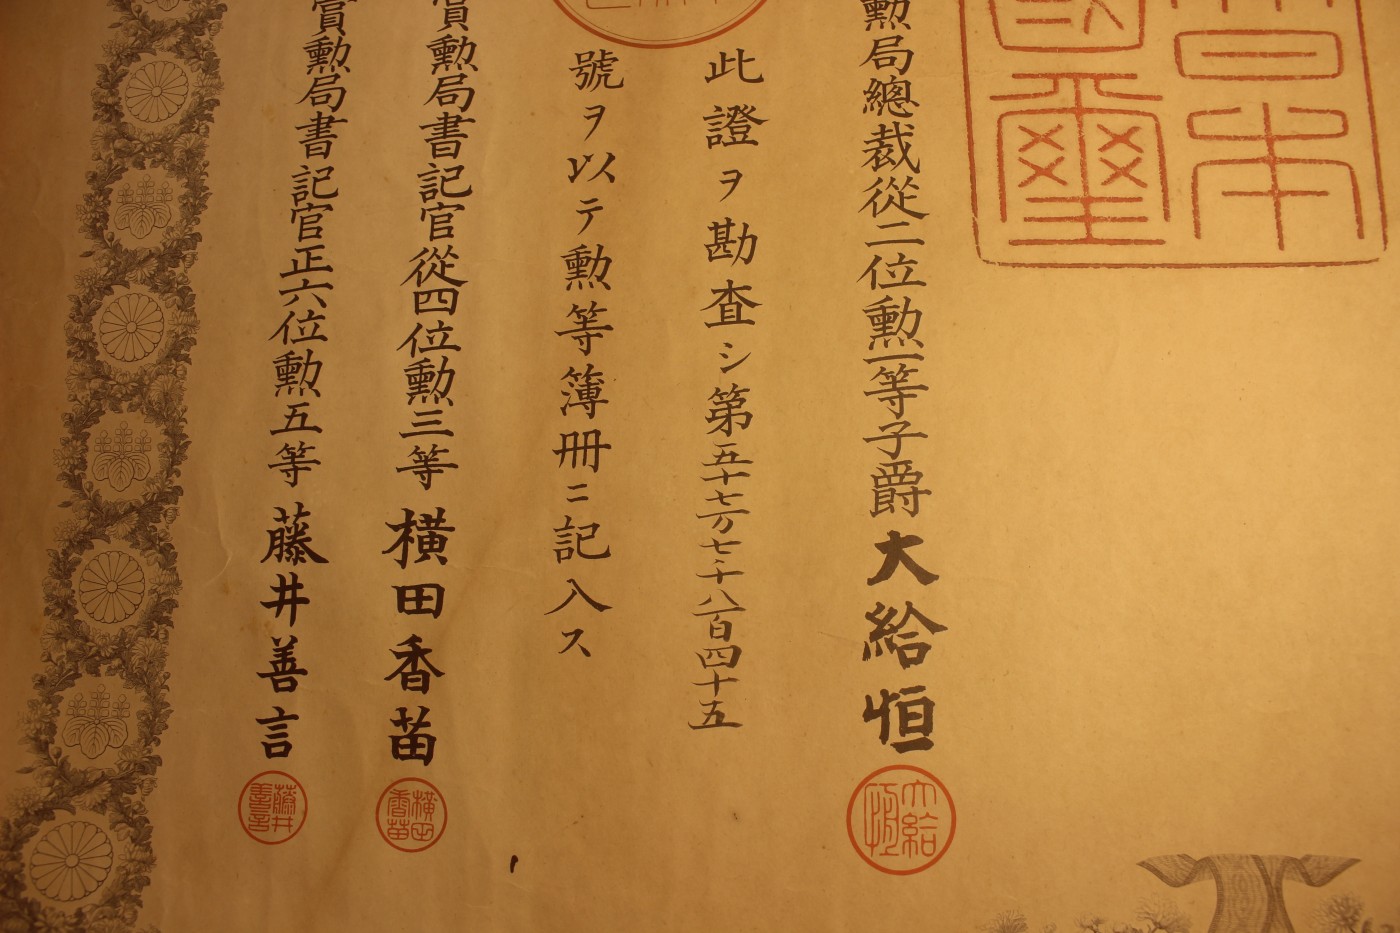 日本
國璽
勳局總裁從二位勳一等子爵大給恒
大給恒
此證ヲ勘査シ第五十七万七千八百四十五
號ヲ以テ勳等簿冊ニ記入ス
賞勳局書記官從四位勳三等横田香苗
横田香苗
賞勳局書記官正六位勳五等藤井善言
藤井善言